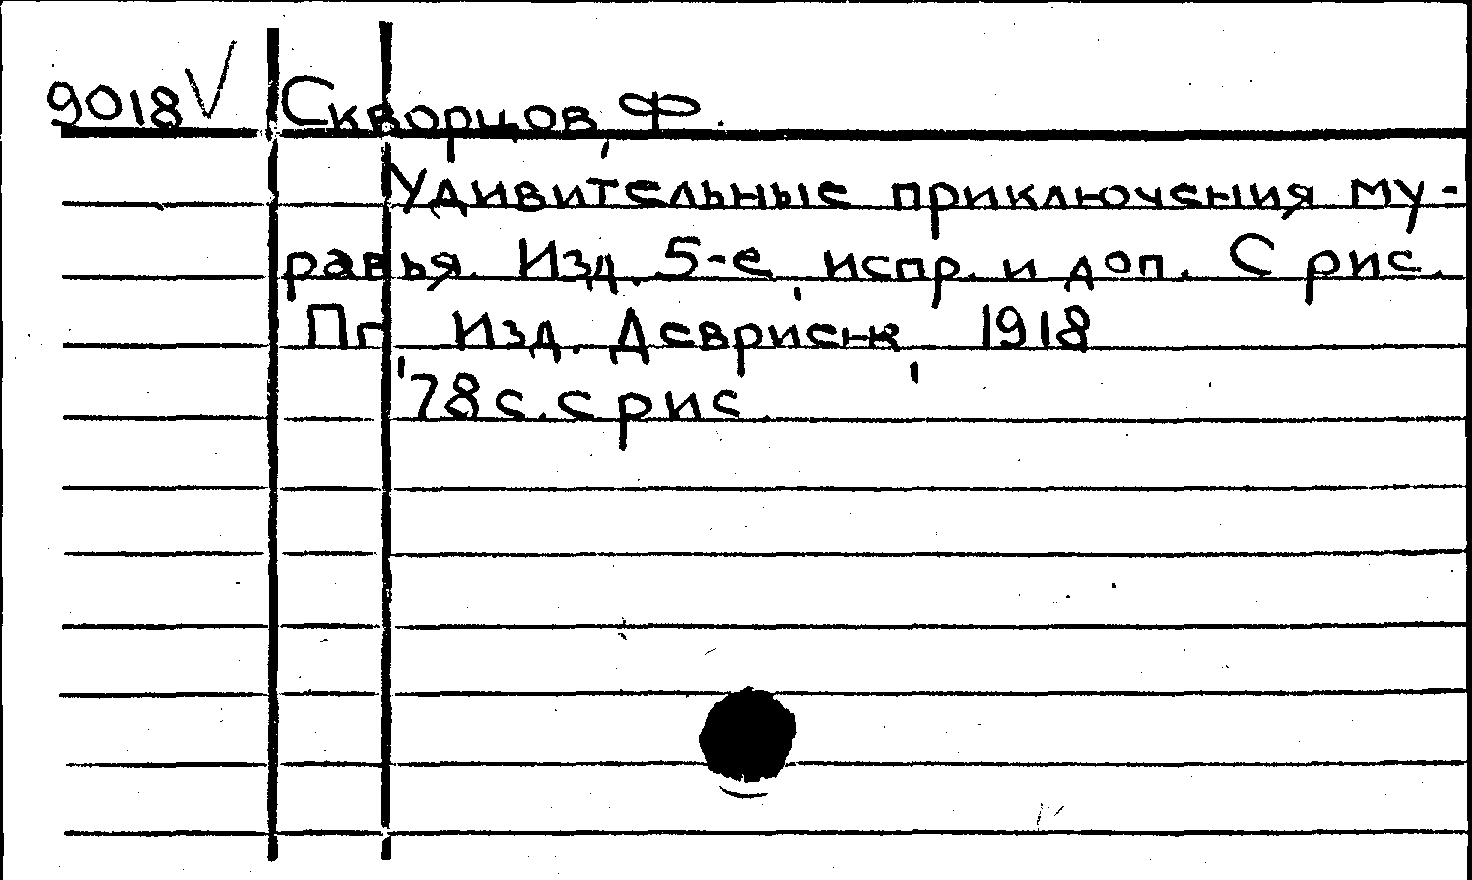 9018 V Скворцов, Ф.
Удивительные приключения му-
равья. Изд. 5-е, испр. и доп. С рис.
Пг., Изд. Девриен, 1918
78 с. с рис.